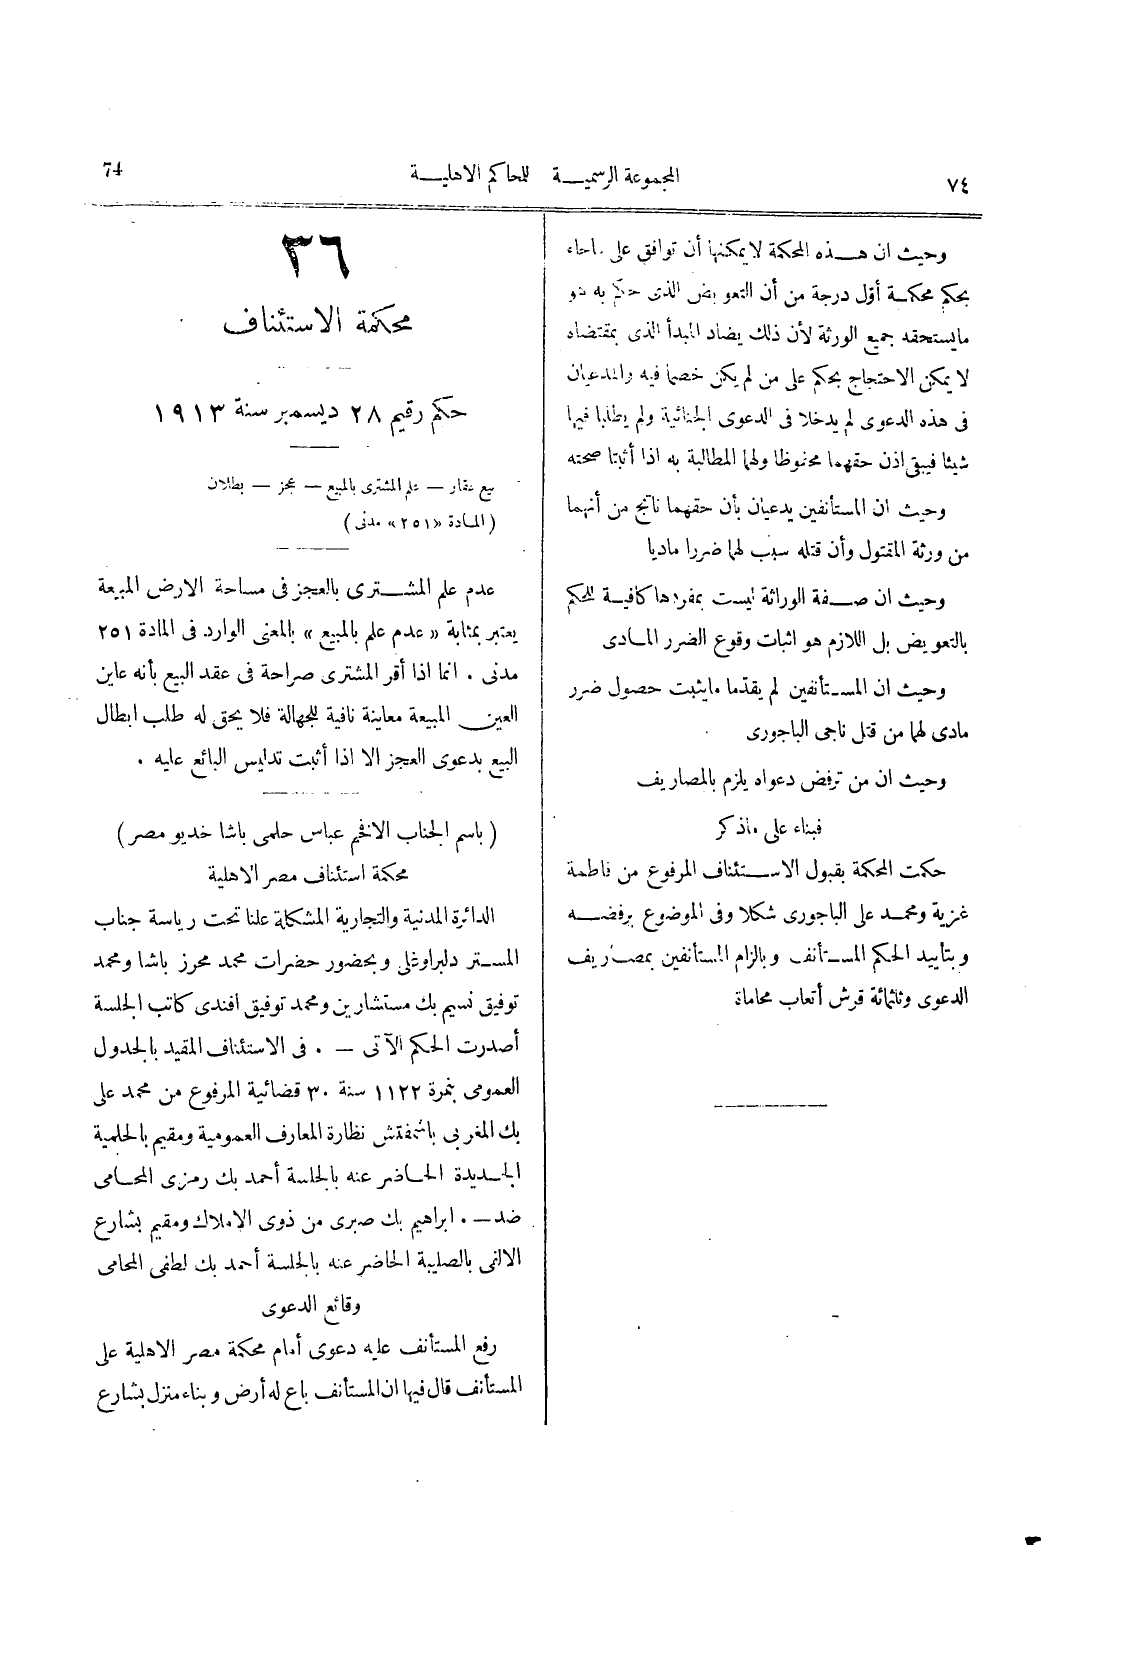 74
المجموعة الرسمية للمحاكم الاهلية
٧٤
وحيث ان هذه المحكمة لا يمكنها أن توافق على ماجاء
بحكم محكمة أول درجة من أن التعويض الذى حكم به هو
مايستحقه جميع الورثة لأن ذلك يضاد المبدأ الذى بمقتضاه
لا يمكن الاحتجاج بحكم على من لم يكن خصما فيه والمدعيان
فى هذه الدعوى لم يدخلا فى الدعوى الجنائية ولم يطلبا فيها
شيئا فيبقى اذن حقهما محفوظا ولهما المطالبة به اذا أثبتا صحته
وحيث ان المستأنفين يدعيان بأن حقهما ناتج من أنهما
من ورثة المقتول وأن قتله سبب لهما ضررا ماديا
وحيث ان صفة الوراثة ليست بمفردها كافية للحكم
بالتعويض بل اللازم هو اثبات وقوع الضرر المادى
وحيث ان المستأنفين لم يقدما مايثبت حصول ضرر
مادى لهما من قتل ناجى الباجورى
وحيث ان من ترفض دعواه يلزم بالمصاريف
فبناء على ماذكر
حكمت المحكمة بقبول الاستئناف المرفوع من فاطمة
غزية ومحمد على الباجورى شكلا وفى الموضوع برفضه
وبتأييد الحكم المستأنف وبالزام المستأنفين بمصاريف
الدعوى وثلثمائة قرش أتعاب محاماة
٣٦
محكمة الاستئناف
حكم رقيم ٢٨ ديسمبر سنة ١٩١٣
بيع عقار — علم المشترى بالمبيع — عجز — بطلان
(المادة «٢٥١» مدنى)
عدم علم المشترى بالعجز فى مساحة الارض المبيعة
يعتبر بمثابة «عدم علم بالمبيع» بالمعنى الوارد فى المادة ٢٥١
مدنى . انما اذا أقر المشترى صراحة فى عقد البيع بأنه عاين
العين المبيعة معاينة نافية للجهالة فلا يحق له طلب ابطال
البيع بدعوى العجز الا اذا أثبت تدليس البائع عليه .
(باسم الجناب الافخم عباس حلمى باشا خديو مصر)
محكمة استئناف مصر الاهلية
الدائرة المدنية والتجارية المشكلة علنا تحت رياسة جناب
المستر دلبراوغلى وبحضور حضرات محمد محرز باشا ومحمد
توفيق نسيم بك مستشارين ومحمد توفيق افندى كاتب الجلسة
أصدرت الحكم الآتى — . فى الاستئناف المقيد بالجدول
العمومى بنمرة ١١٢٢ سنة ٣٠ قضائية المرفوع من محمد على
بك المغربى باشمفتش نظارة المعارف العمومية ومقيم بالحلمية
الجديدة الحاضر عنه بالجلسة أحمد بك رمزى المحامى
ضد — . ابراهيم بك صبرى من ذوى الاملاك ومقيم بشارع
الالفى بالصليبة الحاضر عنه بالجلسة أحمد بك لطفى المحامى
وقائع الدعوى
رفع المستأنف عليه دعوى أمام محكمة مصر الاهلية على
المستأنف قال فيها ان المستأنف باع له أرض وبناء منزل بشارع